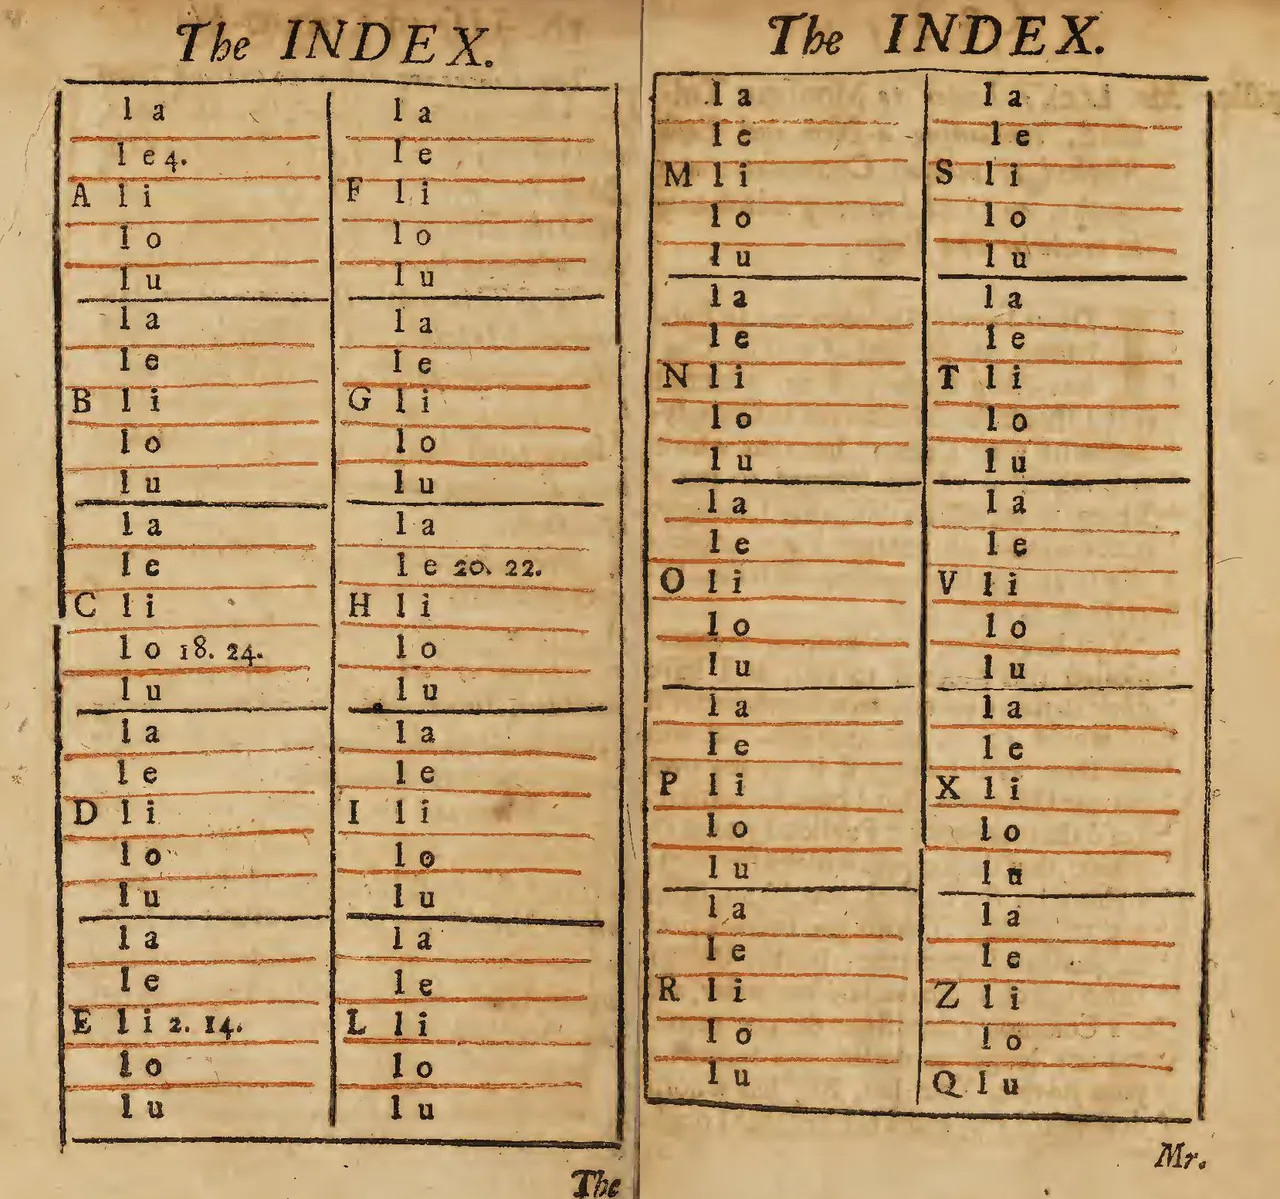 The INDEX.
l a
l e 4.
A l i
l o
l u
l a
l e
B l i
l o
l u
l a
l e
C l i
l o 18. 24.
l u
l a
l e
D l i
l o
l u
l a
l e
E l i 2. 14.
l o
l u
l a
l e
F l i
l o
l u
l a
l e
G l i
l o
l u
l a
l e 20. 22.
H l i
l o
l u
l a
l e
I l i
l o
l u
l a
l e
L l i
l o
l u
The
The INDEX.
l a
l e
M l i
l o
l u
l a
l e
N l i
l o
l u
l a
l e
O l i
l o
l u
l a
l e
P l i
l o
l u
l a
l e
R l i
l o
l u
l a
l e
S l i
l o
l u
l a
l e
T l i
l o
l u
l a
l e
V l i
l o
l u
l a
l e
X l i
l o
l u
l a
l e
Z l i
l o
Q l u
Mr.